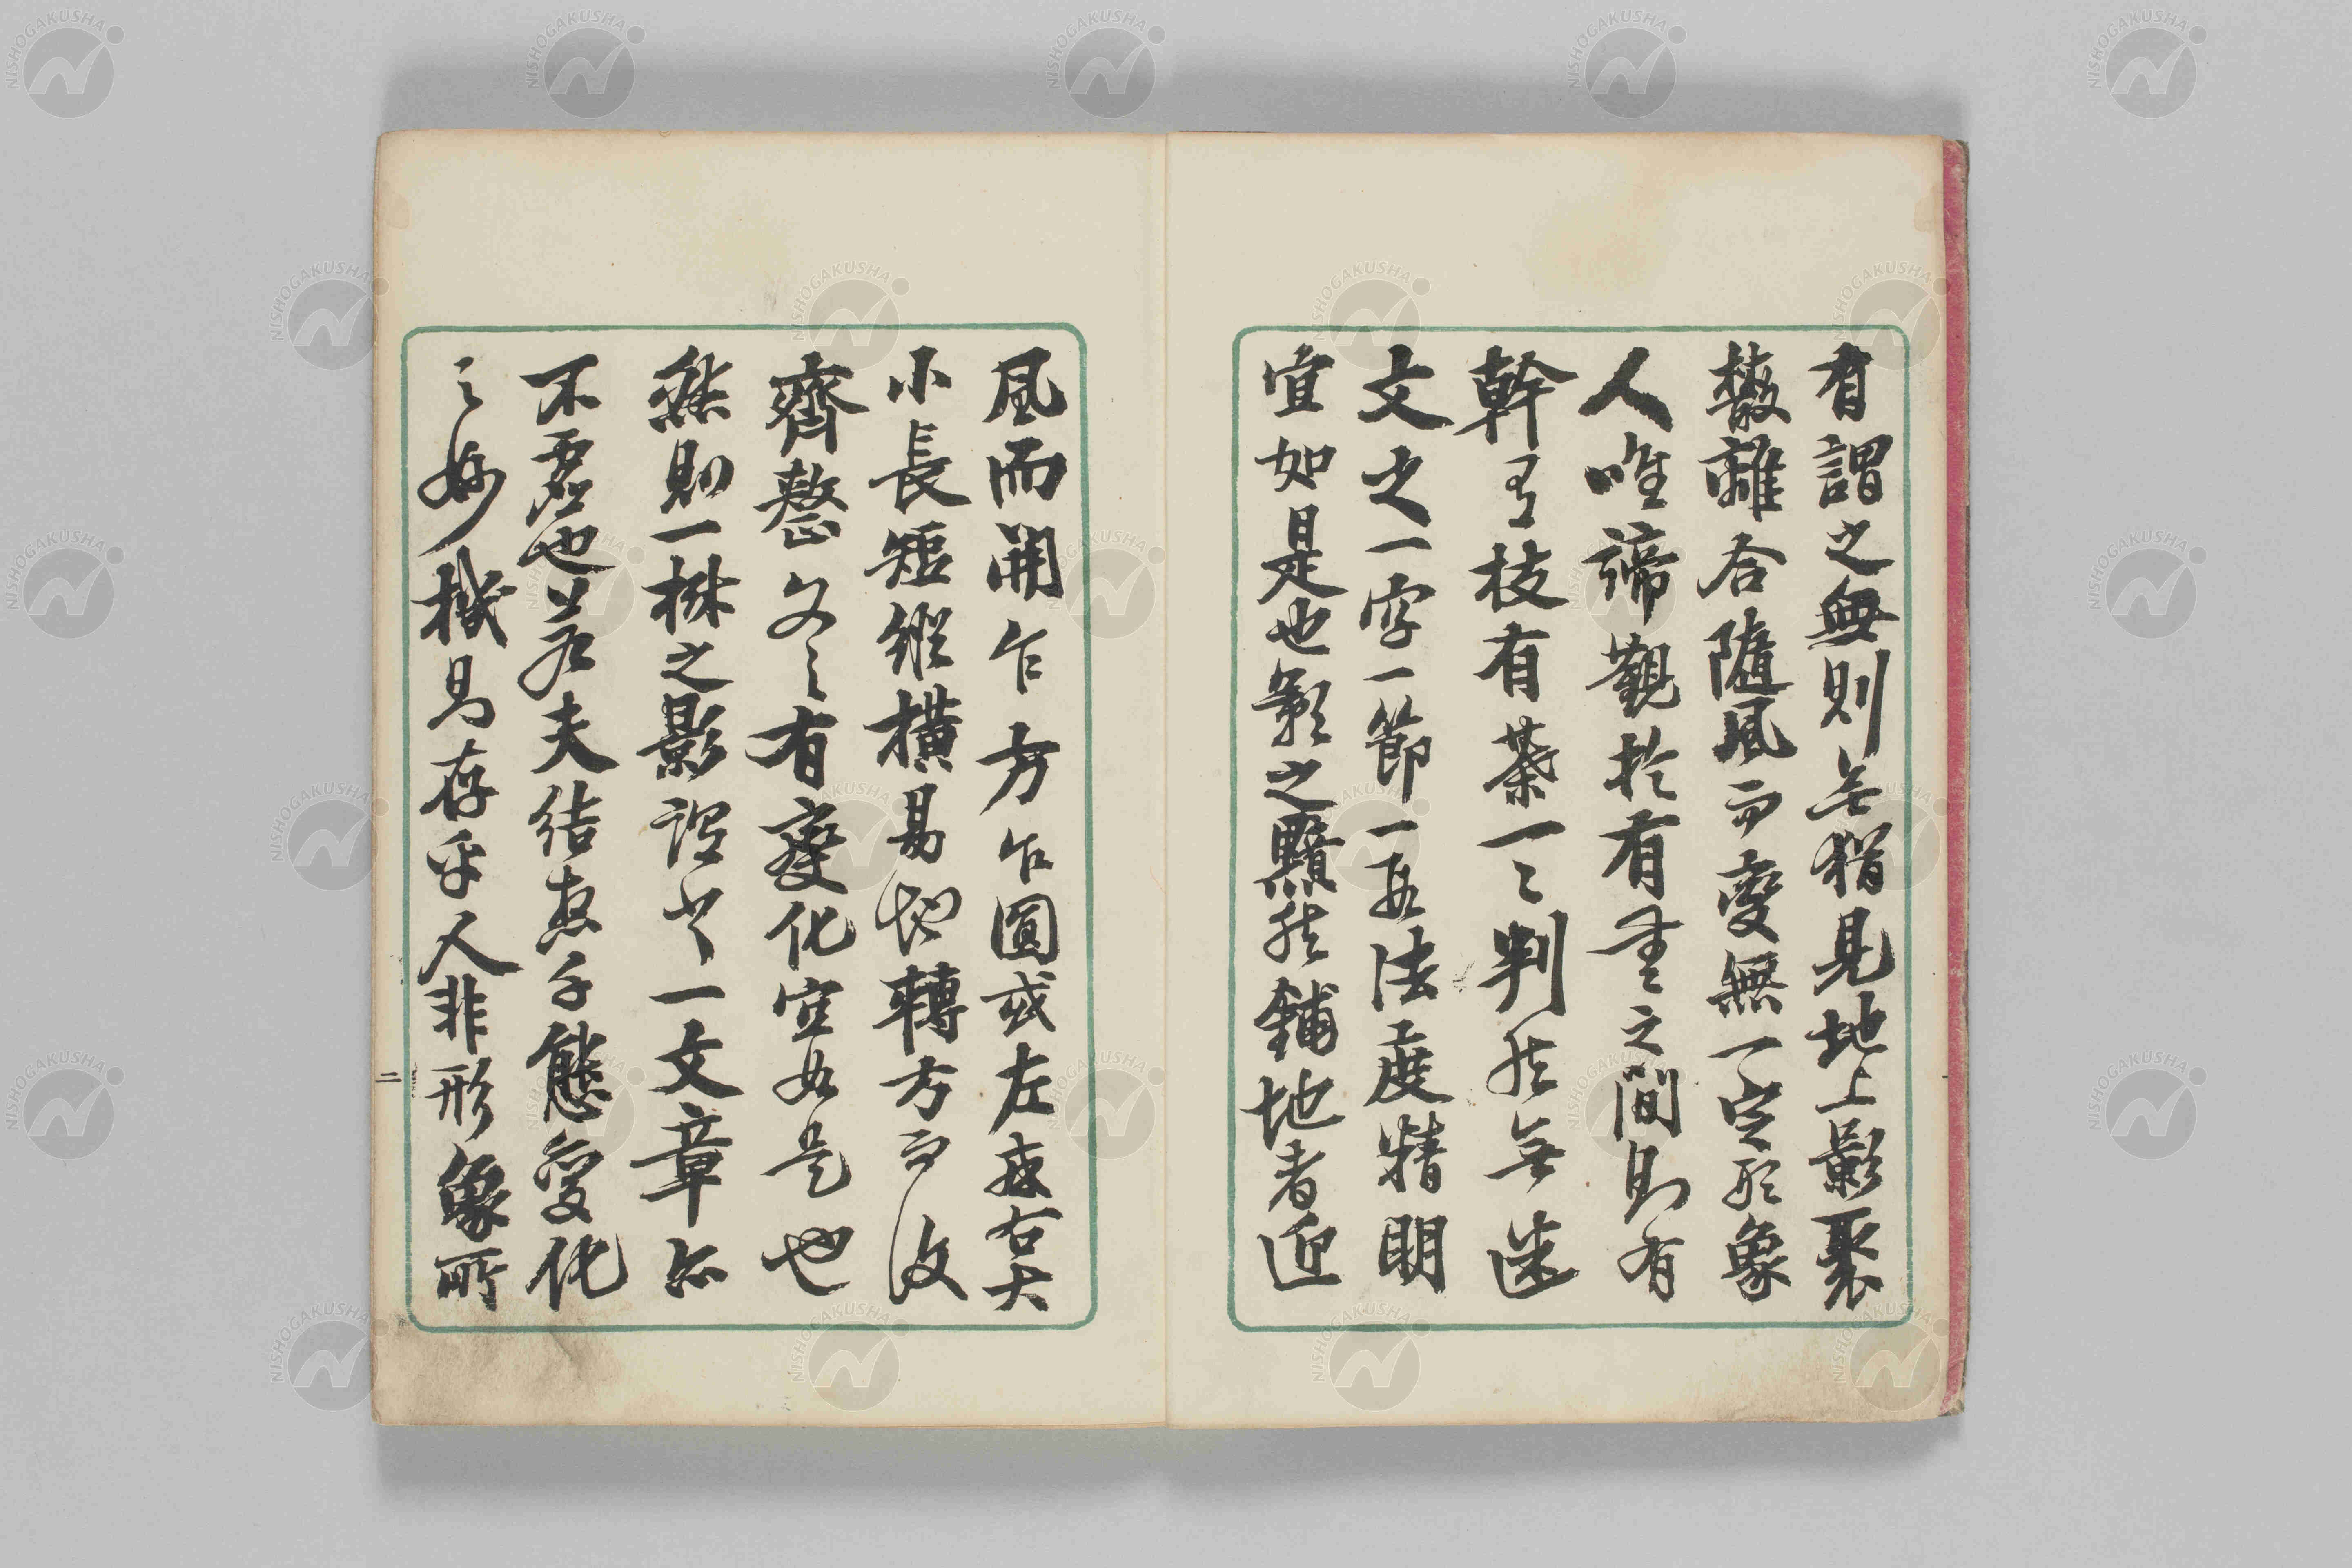 有謂之無則無猶見地上影聚
散離合隨風而變無一定形象
人唯諦觀於有無之間則有
幹有枝有葉一〻判然無迷
文之一字一節一段法度精明
宜如是也影之黯然鋪地者迎
風而開乍方乍圓或左或右大
小長短縱橫易地轉方而後
齊整文〻有變化宜如是也
然則一樹之影謂之一文章亦
不虛也若夫結

態變化
之妙機馬存乎人非形象所
二
NISHOGAKUSHA